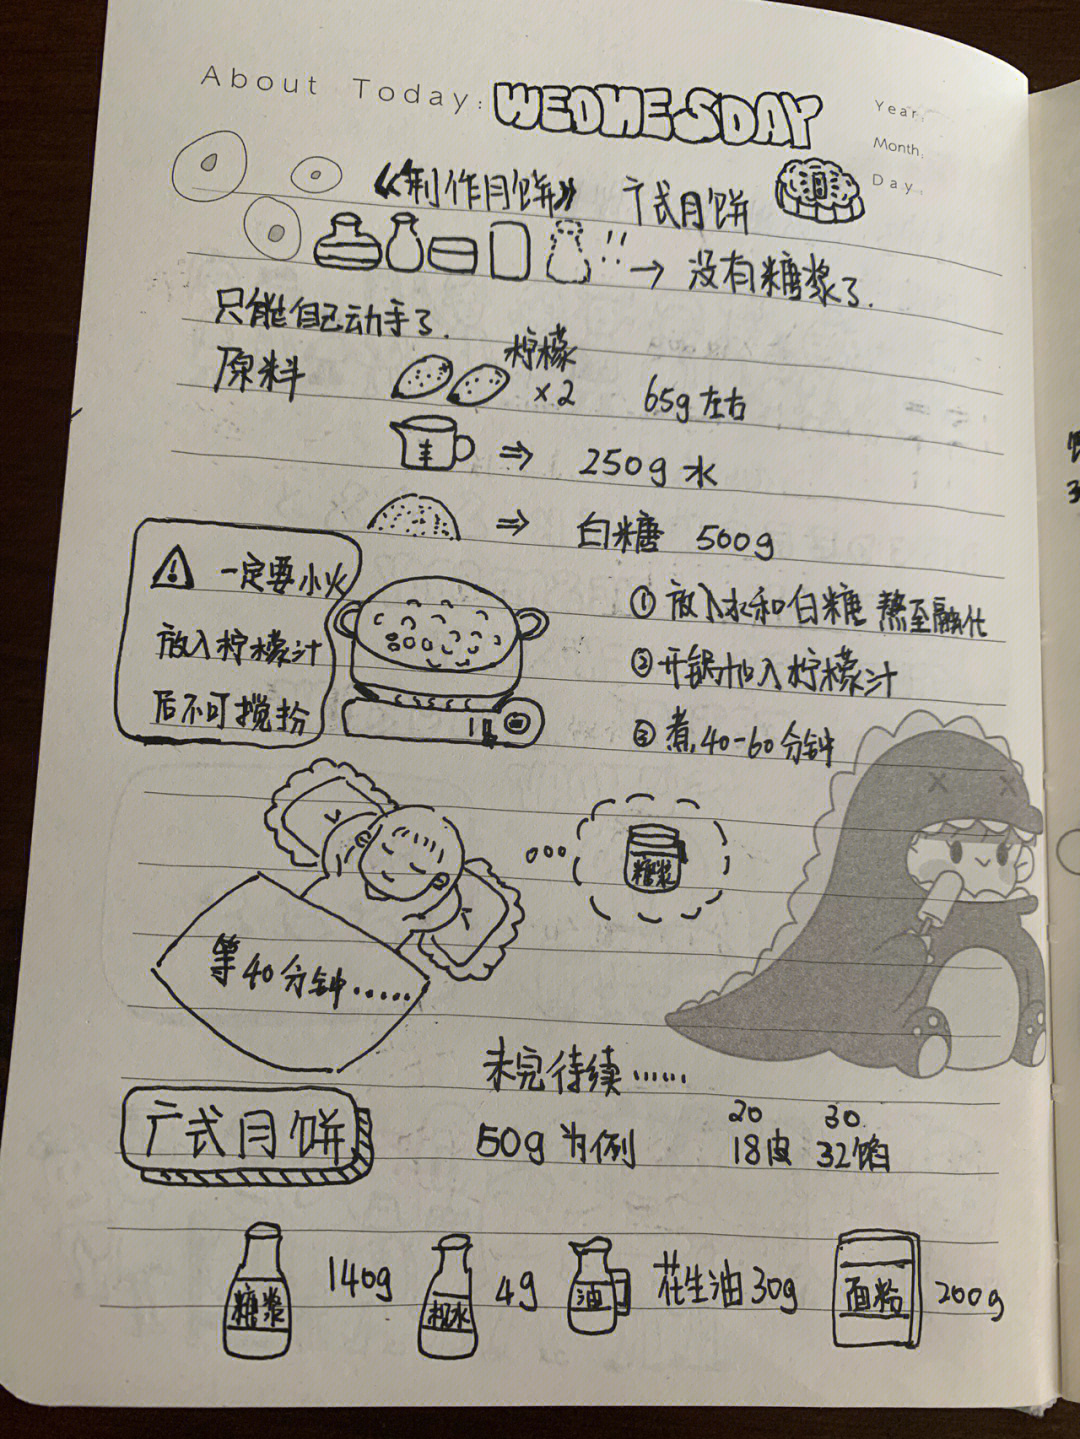 About Today: WEDNESDAY
Year:
Month:
Day:
《制作月饼》 广式月饼
!! → 没有糖浆了.
只能自己动手了.
原料 柠檬 x2 65g左右
⇒ 250g 水
⇒ 白糖 500g
⚠ 一定要小火
放入柠檬汁
后不可搅扮
① 放入水和白糖 熬至融化
② 开锅加入柠檬汁
③ 煮40-60分钟
糖浆
等40分钟……
未完待续……
广式月饼 50g 为例
20 30
18皮 32馅
糖浆 140g 枧水 4g 油 花生油30g 面粉 200g